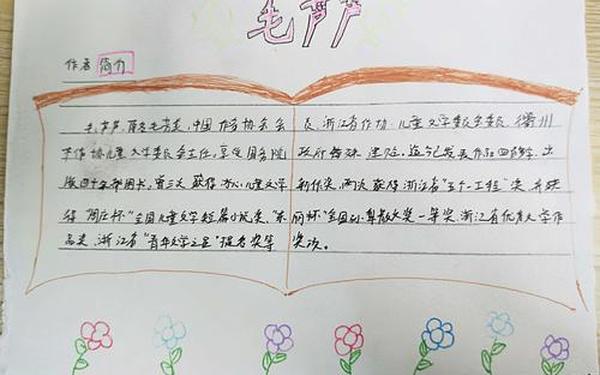 毛芦芦
作者简介
毛芦芦,原名毛芳美,中国作家协会会员,浙江省作协儿童文学委员会委员,衢州
市作协儿童文学委员会主任,享受国务院政府特殊津贴,迄今已发表作品四百万字,出
版四十多部图书,曾三次获得冰心儿童文学新作奖,两次获得浙江省"五个一工程"奖,并获
得"周庄杯"全国儿童文学短篇小说奖、"东丽杯"全国孙犁散文奖一等奖、浙江省优秀文学作
品奖、浙江省"青年文学之星"提名奖等奖项。